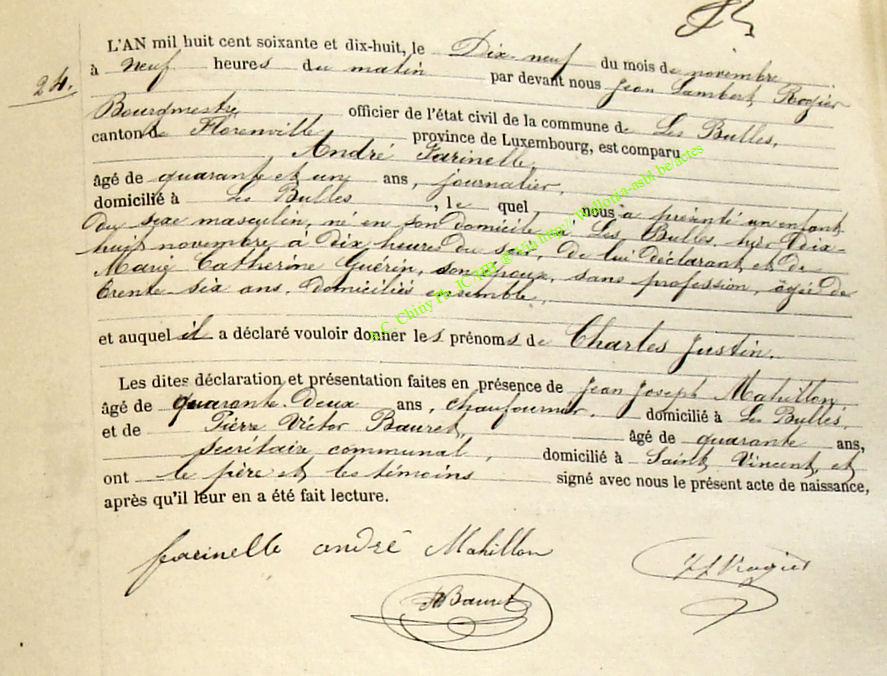 24.
L'AN mil huit cent soixante et dix-huit, le Dix-neuf du mois de novembre
à neuf heures du matin par devant nous Jean Lambert Rogier
Bourgmestre officier de l'état civil de la commune de Les Bulles,
canton de Florenville province de Luxembourg, est comparu
André Farinelle,
âgé de quarante et un ans, journalier,
domicilié à Les Bulles, le quel nous a présenté un enfant
du sexe masculin, né en son domicile à Les Bulles, hier dix-
huit novembre à dix heures du soir, de lui déclarant et de
Marie Catherine Guérin, son épouse, sans profession, âgée de
trente-six ans, domiciliés ensemble,
et auquel il a déclaré vouloir donner les prénoms de Charles Justin.
Les dites déclaration et présentation faites en présence de Jean Joseph Mahillon
âgé de quarante deux ans, chaufournier, domicilié à Les Bulles,
et de Pierre Victor Bauret, âgé de quarante ans,
secrétaire communal, domicilié à Saint Vincent, et
ont le père et les témoins signé avec nous le présent acte de naissance,
après qu'il leur en a été fait lecture.
farinelle andré Mahillon
Bauret